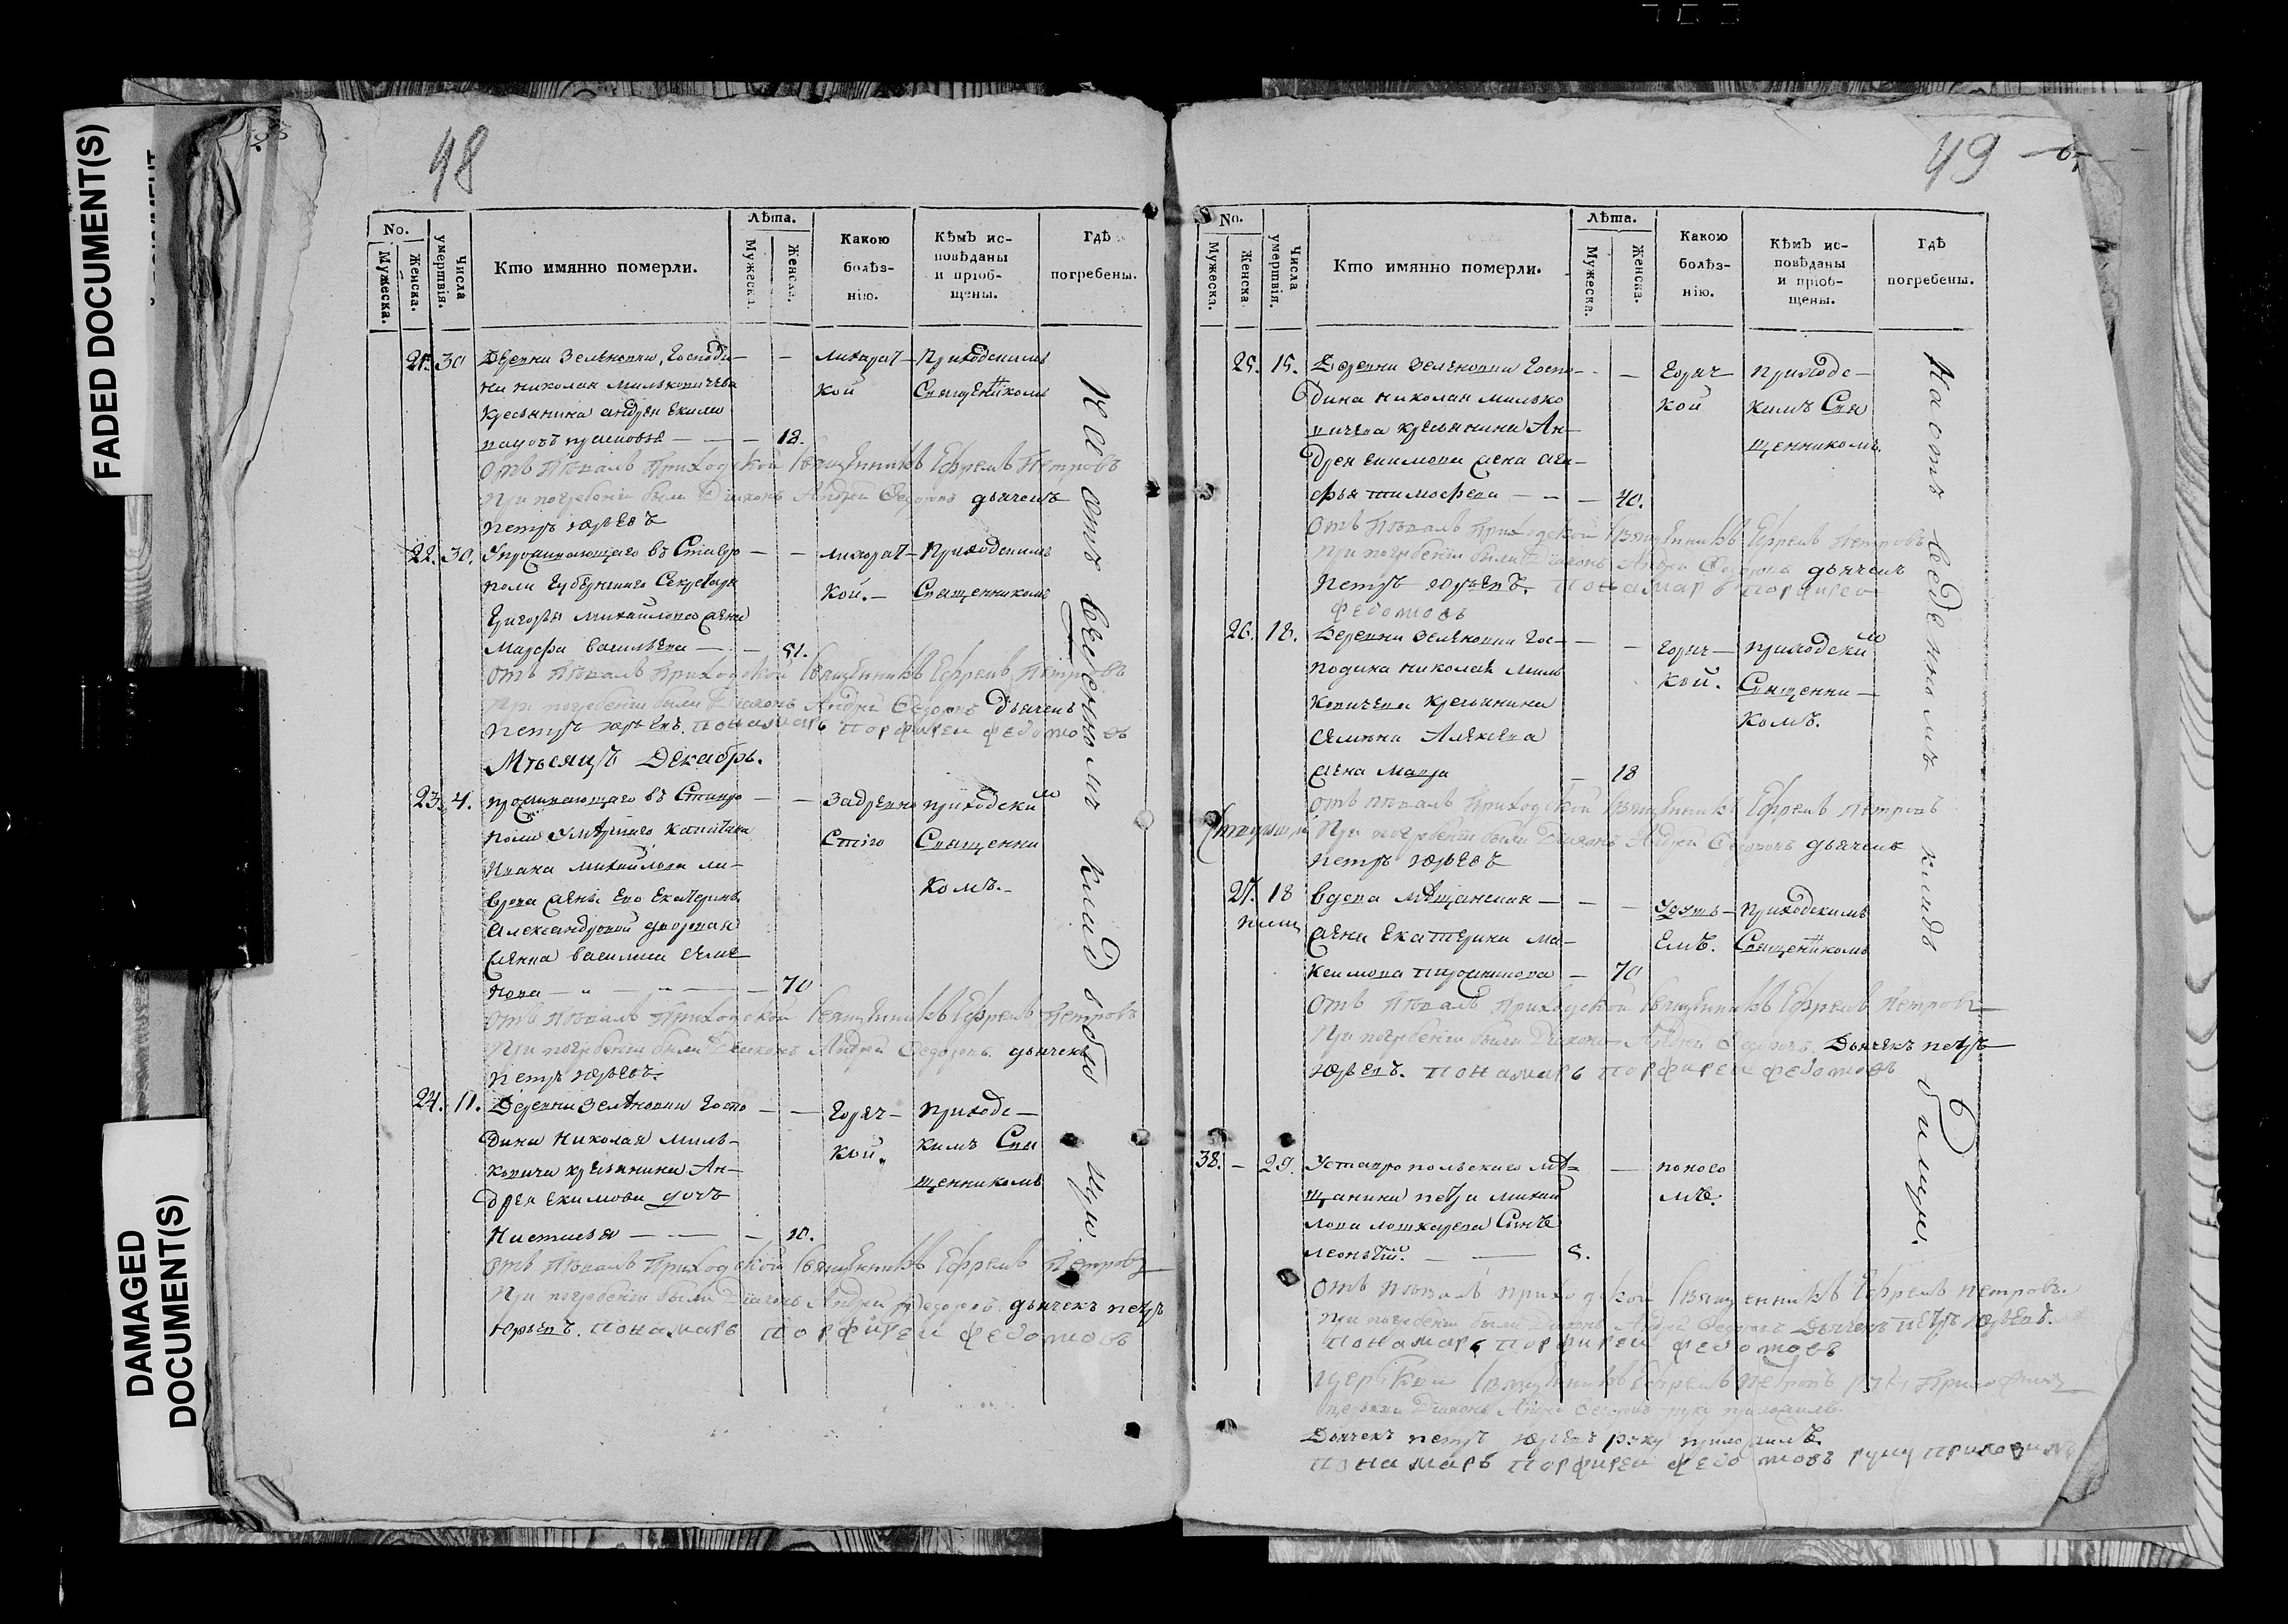 FADED DOCUMENT(S)
DAMAGED
DOCUMENT(S)
48
No.
Мужеска.
Женска.
Числа
умертвія.
Кто имянно померли.
Лѣта.
Мужеска.
Женска.
Какою
болѣз-
нію.
Кѣмъ ис-
повѣданы
и пріоб-
щены.
Гдѣ
погребены.
21. 30 Деревни Зеленовки, Господи-
на Николая Мильковичева
Кресьянина Андрея Екимо
18.
лихорат-
кой
Приходскимъ
Священникомъ
Отъ Пѣвалъ Приходской Священникъ Ефремъ Петровъ
При погребеніи были Діаконъ Андрей Федоровъ дьячекъ
петръ юрьевъ
22. 30. Упроживающаго въ Ставро
поли Губернскаго Секретаря
Григорья Михайлова жена
Марфа Васильева — 51.
лихорат-
кой.-
Приходскимъ
Священникомъ
Отъ Пѣвалъ Приходской Священникъ Ефремъ Петровъ
При погребеніи были Діаконъ Андрей Федоровъ дьячекъ
петръ юрьевъ. понамарь порфиреи федотовъ
Мѣсяцъ Декабрь.
23. 4. проживающаго въ Ставро
поли
Ивана Михайлова ли-
врова жены Его Екатерины
Александровой дворовая
жонка василиса
70
Задревно
Стію
приходским
Священни
комъ.-
Отъ Пѣвалъ Приходской Священникъ Ефремъ Петровъ
При погребеніи были Діаконъ Андрей Федоровъ. дьячекъ
петръ юрьевъ.
24. 11. Деревни Зеленовки Госпо
дина Николая Миль-
ковича кресьянина Ан-
дрея Екимова дочь
Настасья — 10.
Горяч-
кой.
приходс-
кимъ Свя
щенникомъ
Отъ Пѣвалъ Приходской Священникъ Ефремъ Петровъ
При погребеніи были Діаконъ Андрей Федоровъ дьячекъ петръ
юрьевъ. понамарь порфиреи федотовъ
49
No.
Мужеска.
Женска.
Числа
умертвія.
Кто имянно померли.
Лѣта.
Мужеска.
Женска.
Какою
болѣз-
нію.
Кѣмъ ис-
повѣданы
и пріоб-
щены.
Гдѣ
погребены.
25. 15. Деревни Зеленовки Госпо-
дина Николая Милько
вичева кресьянина Ан-
дрея Екимова жена ага-
фья тимофеева — 40.
Горяч
кой
приходс-
кимъ Свя
щенникомъ.
Отъ Пѣвалъ Приходской Священникъ Ефремъ Петровъ
При погребеніи были Діаконъ Андрей Федоровъ дьячекъ
петръ юрьевъ. понамарь порфиреи
федотовъ
26. 18. Деревни Зеленовки Гос-
подина Николая Миль
ковичева кресьянина
Алексева
жена Мавра — 18
Горяч-
кой.
приходским
Священни-
комъ.
Отъ пѣвалъ Приходской Священникъ Ефремъ Петровъ
При погребеніи были Діаконъ Андрей Федоровъ дьячекъ
петръ юрьевъ
27. 18 вдова мѣщанская —
жена Екатерина Ма-
ксимова — 70
Удуть-
емъ.
приходскимъ
Священникомъ
Отъ Пѣвалъ Приходской Священникъ Ефремъ Петровъ
При погребеніи были Діаконъ Андрей Федоровъ. Дьячекъ петръ
юрьевъ. понамарь порфиреи федотовъ
38. - 29. Уставропольскаго мѣ-
щанина петра михай
лова лошкарева Сынъ
леонтий. — 5.
поносо
мъ.
Отъ пѣвалъ приходской Священникъ Ефремъ петровъ.
При погребеніи были Діаконъ Андрей Федоровъ Дьячекъ петръ юрьевъ.
понамарь порфиреи федотовъ
церькви Священникъ Ефремъ Петровъ руку Приложилъ
церкви Діаконъ Андрей Федоровъ руку приложилъ.
Дьячекъ петръ юрьевъ руку приложилъ.
понамарь порфиреи федотовъ руку приложилъ